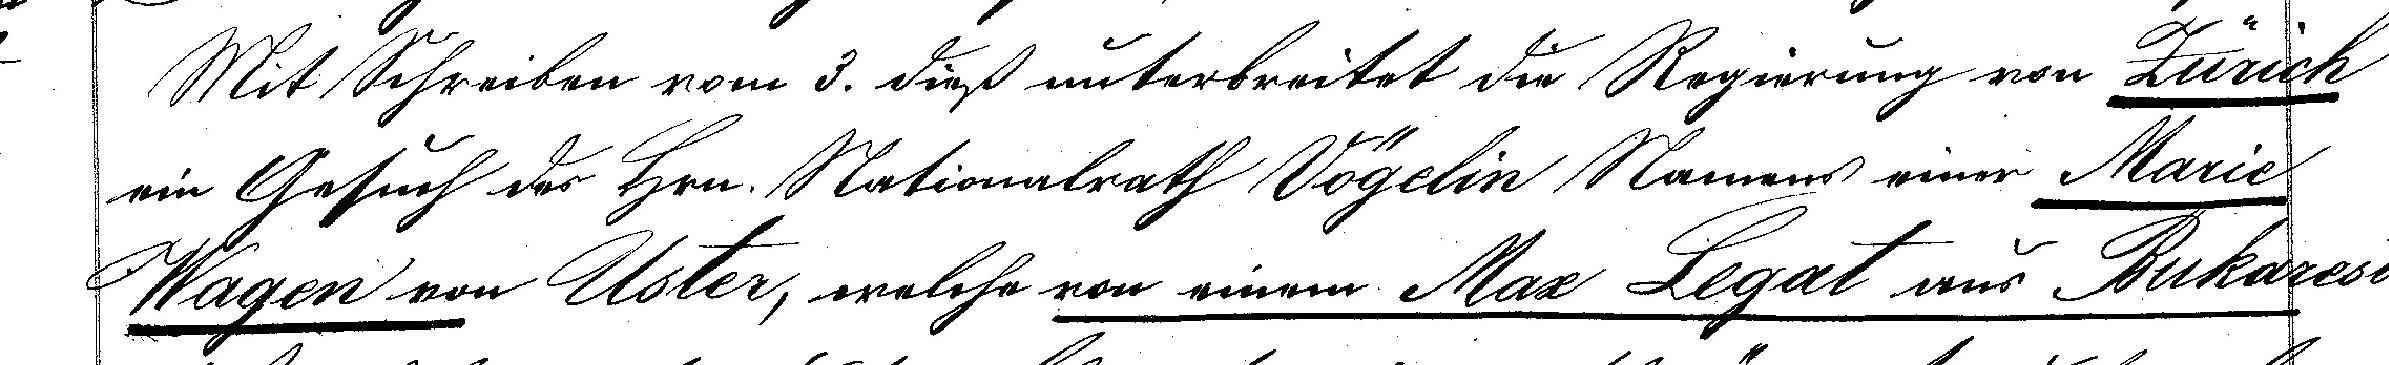 Mit Schreiben vom 3. dieß unterbreitet die Regierung von Zürich
ein Gesuch des Hrn. Nationalrath Vögelin Namens einer Marie
Wagen von Uster, welche von einem Max Legat aus Bukarest